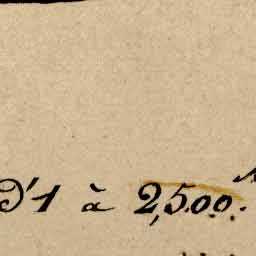 D'1 à 2,500.